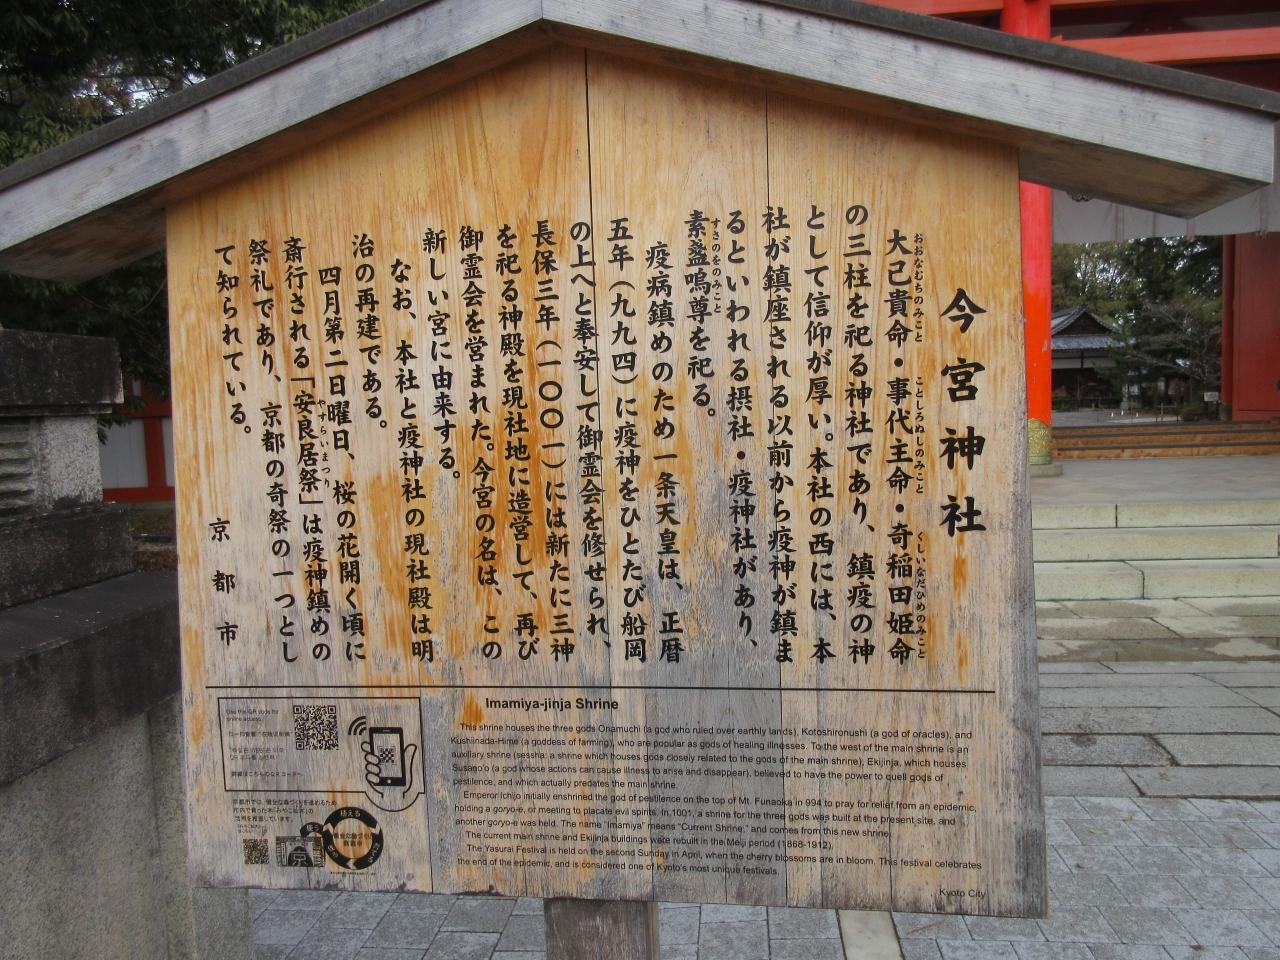 今宮神社
大己貴命・事代主命・奇稲田姫命
おおなむちのみこと ことしろぬしのみこと くしいなだひめのみこと
の三柱を祀る神社であり、鎮疫の神
として信仰が厚い。本社の西には、本
社が鎮座される以前から疫神が鎮ま
るといわれる摂社・疫神社があり、
素盞嗚尊を祀る。
すさのをのみこと
疫病鎮めのため一条天皇は、正暦
五年(九九四)に疫神をひとたび船岡
の上へと奉安して御霊会を修せられ、
長保三年(一〇〇一)には新たに三神
を祀る神殿を現社地に造営して、再び
御霊会を営まれた。今宮の名は、この
新しい宮に由来する。
なお、本社と疫神社の現社殿は明
治の再建である。
四月第二日曜日、桜の花開く頃に
斎行される「安良居祭」は疫神鎮めの
やすらいまつり
祭礼であり、京都の奇祭の一つとし
て知られている。
京都市
Imamiya-jinja Shrine
This shrine houses the three gods Onamuchi (a god who ruled over earthly lands), Kotoshironushi (a god of oracles), and
Kushiinada-Hime (a goddess of farming), who are popular as gods of healing illnesses. To the west of the main shrine is an
auxiliary shrine (sessha: a shrine which houses gods closely related to the gods of the main shrine), Ekijinja, which houses
Susano'o (a god whose actions can cause illness to arise and disappear), believed to have the power to quell gods of
pestilence, and which actually predates the main shrine.
Emperor Ichijo initially enshrined the god of pestilence on the top of Mt. Funaoka in 994 to pray for relief from an epidemic,
holding a goryo-e, or meeting to placate evil spirits. In 1001, a shrine for the three gods was built at the present site, and
another goryo-e was held. The name "Imamiya" means "Current Shrine," and comes from this new shrine.
The current main shrine and Ekijinja buildings were rebuilt in the Meiji period (1868-1912).
The Yasurai Festival is held on the second Sunday in April, when the cherry blossoms are in bloom. This festival celebrates
the end of the epidemic, and is considered one of Kyoto's most unique festivals.
Kyoto City
Use this QR code for
online access.
詳細はこちらのQRコードへ。